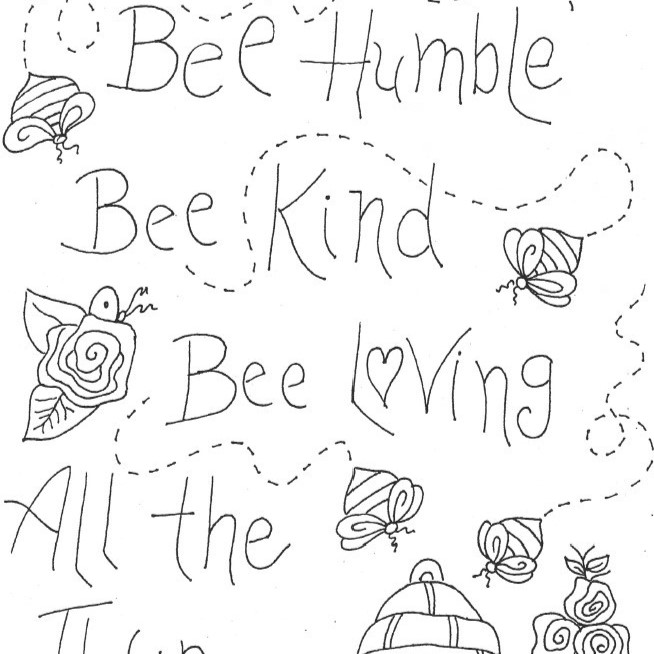 Bee Humble
Bee Kind
Bee Loving
All the